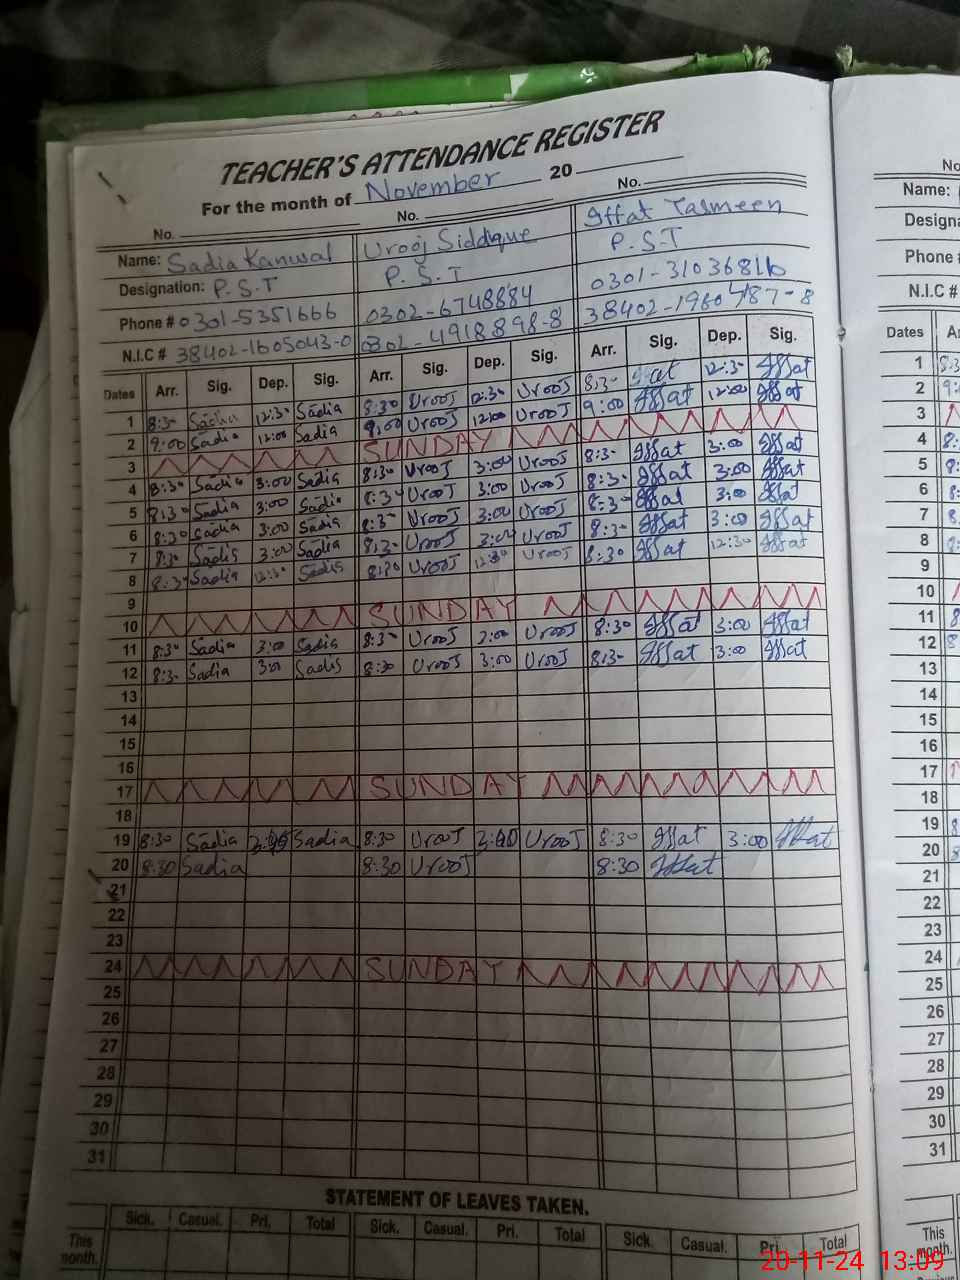 TEACHER'S ATTENDANCE REGISTER
For the month of November 20
No. No. No.
Name: Sadia Kanwal Urooj Siddique Iffat Tasmeen
Designation: P.S.T P.S.T P.S.T
Phone # 0301-5351666 0302-6748884 0301-3103681b
N.I.C # 38402-1605043-0 4918898-8 38402-1960487-8
Dates Arr. Sig. Dep. Sig. Arr. Sig. Dep. Sig. Arr. Sig. Dep. Sig.
1 8:30 Sadia 12:30 Sadia 8:30 Urooj 12:30 Urooj 8:30 Iffat 12:30 Iffat
2 9:00 Sadia 12:00 Sadia 9:00 Urooj 12:00 Urooj 9:00 Iffat 12:00 Iffat
3 SUNDAY
4 8:30 Sadia 3:00 Sadia 8:30 Urooj 3:00 Urooj 8:30 Iffat 3:00 Iffat
5 8:30 Sadia 3:00 Sadia 8:30 Urooj 3:00 Urooj 8:30 Iffat 3:00 Iffat
6 8:30 Sadia 3:00 Sadia 8:30 Urooj 3:00 Urooj 8:30 Iffat 3:00 Iffat
7 8:30 Sadia 3:00 Sadia 8:30 Urooj 3:00 Urooj 8:30 Iffat 3:00 Iffat
8 8:30 Sadia 12:30 Sadia 8:30 Urooj 12:30 Urooj 8:30 Iffat 12:30 Iffat
9
10 SUNDAY
11 8:30 Sadia 3:00 Sadia 8:30 Urooj 3:00 Urooj 8:30 Iffat 3:00 Iffat
12 8:30 Sadia 3:00 Sadia 8:30 Urooj 3:00 Urooj 8:30 Iffat 3:00 Iffat
13
14
15
16
17 SUNDAY
18
19 8:30 Sadia Sadia 8:30 Urooj Urooj 8:30 Iffat 3:00 Iffat
20 8:30 Sadia 8:30 Urooj 8:30 Iffat
21
22
23
24 SUNDAY
25
26
27
28
29
30
31
STATEMENT OF LEAVES TAKEN.
Sick. Casual. Pri. Total Sick. Casual. Pri. Total Sick. Casual. Pri. Total
This month.
No
Name:
Designa
Phone #
N.I.C #
Dates
1
2
3
4
5
6
7
8
10
11
12
13
14
15
16
17
18
19
20
21
22
23
24
25
26
27
28
29
30
31
This month.
20-11-24 13:09